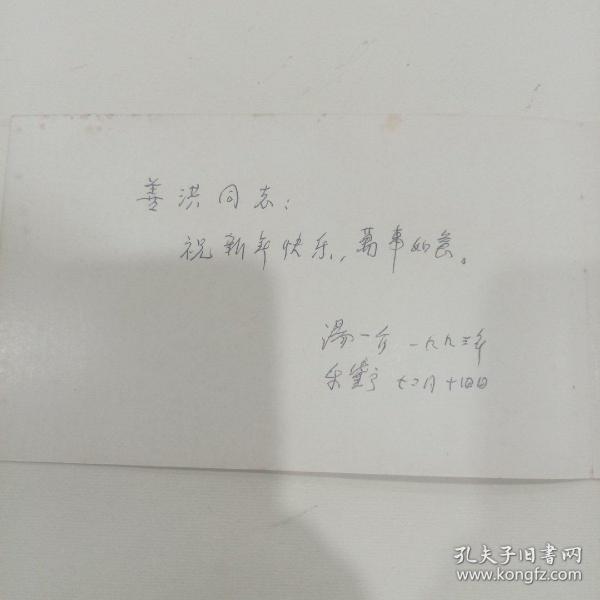 善洪同志：
祝新年快乐，萬事如意。
湯一介 一九九三年
乐黛云 十二月十四日
孔夫子旧书网
www.kongfz.com